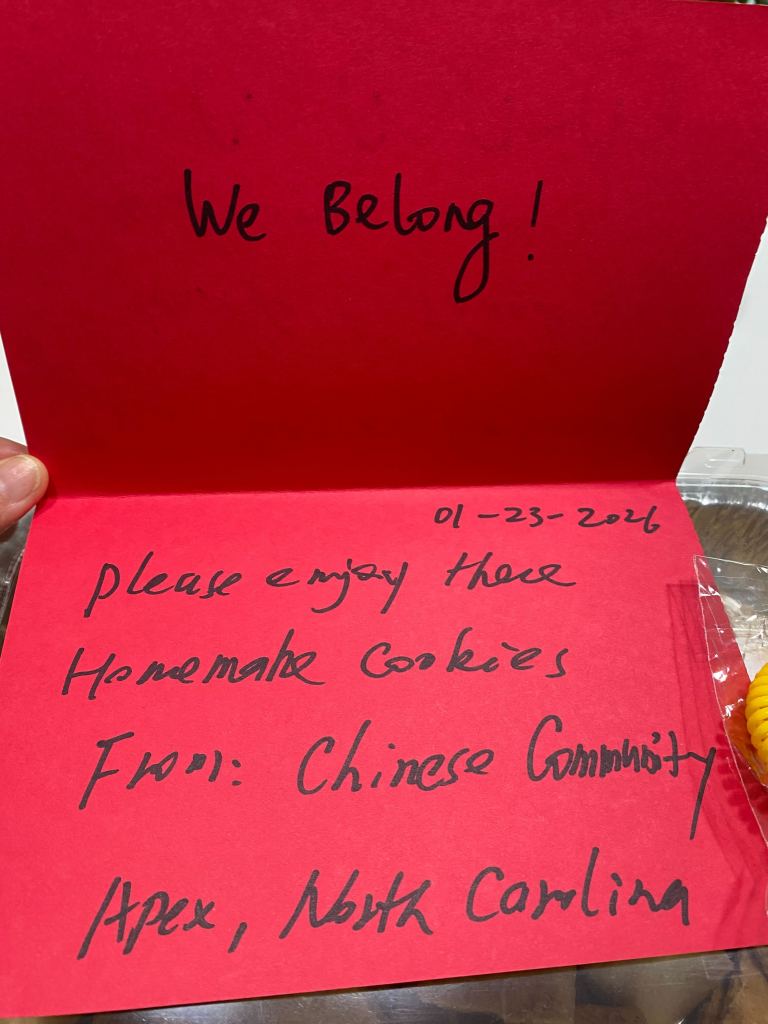 We Belong!
01-23-2026
please enjoy these
Homemake cookies
From: Chinese Community
Apex, North Carolina